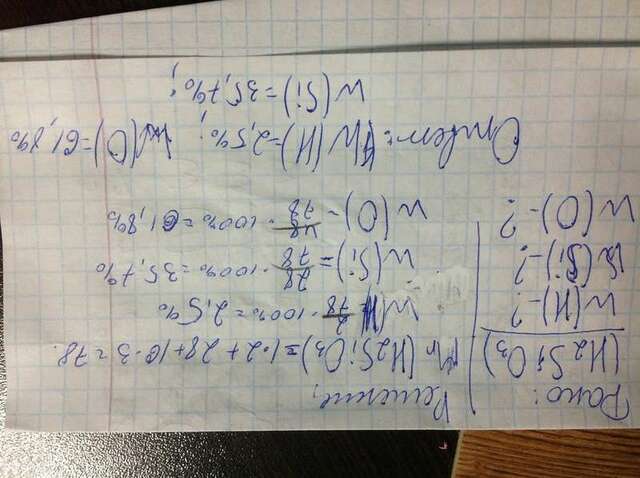 Дано:
(H2SiO3)
w(H)-?
w(Si)-?
w(O)-?
Решение,
Mr(H2SiO3)=1·2+28+16·3=78.
w(H 2/78·100%=2,5%
w(Si)=28/78·100%=35,7%
w(O)-48/78·100%=61,8%
Ответ: W(H)=2,5%; w(O)=61,8%
w(Si)=35,7%;